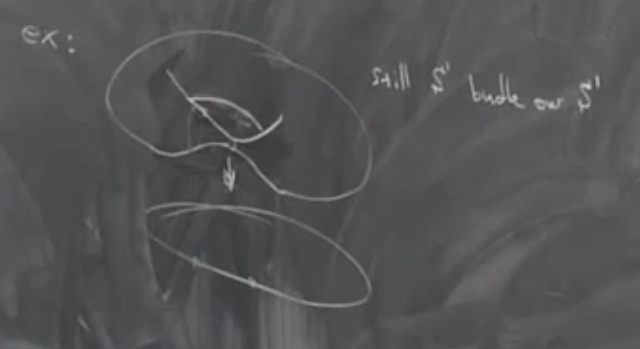 ex:
still S¹ bundle over S¹